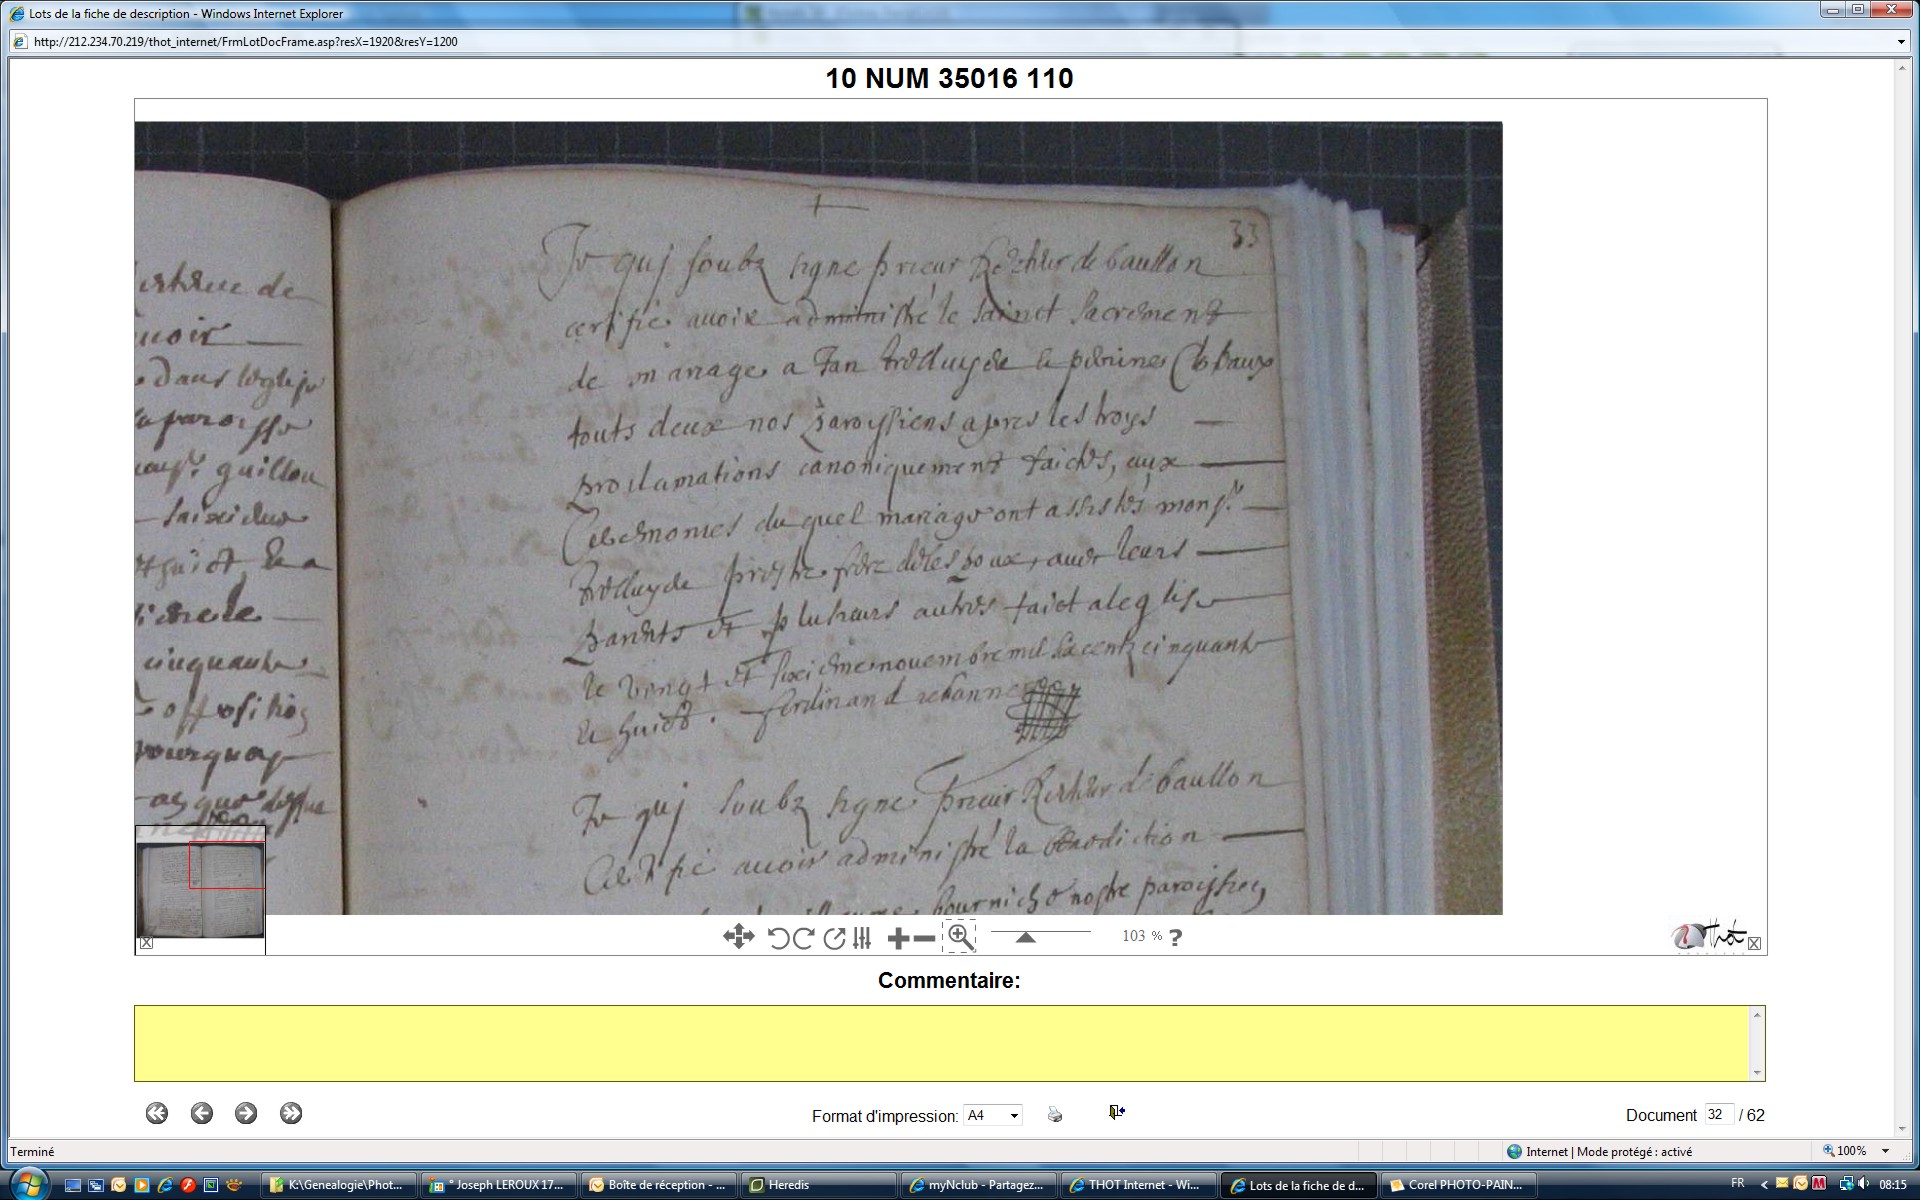 Lots de la fiche de description - Windows Internet Explorer
http://212.234.70.219/thot_internet/FrmLotDocFrame.asp?resX=1920&resY=1200
10 NUM 35016 110
33
Je quj soubz signe prieur Recteur de baullon
certifie avoir administré le sainct sacrement
de mariage a Jan trelluyde et perrine
touts deux nos paroissiens apres les troys
proclamations canoniquement faictes, aux
Ceremonies du quel mariage ont assistés monsr
trelluyde prestre frere de lespoux, avec leurs
parents et plusieurs autres faict a leglise
le vingt et sixieme novembre mil six centz cinquante
et huict. ferdinand
Je quj soubz signe prieur Recteur de baullon
Certifie avoir administré la benediction
nostre paroissien
de
avoir
dans leglise
la paroisse
guillou
cinquante
opposition
pourquoy
103 % ?
Thot
Commentaire:
Format d'impression: A4
Document 32 / 62
Terminé
Internet | Mode protégé : activé
100%
K:\Genealogie\Phot...
° Joseph LEROUX 17...
Boîte de réception - ...
Heredis
myNclub - Partagez...
THOT Internet - Wi...
Lots de la fiche de d...
Corel PHOTO-PAIN...
FR
08:15